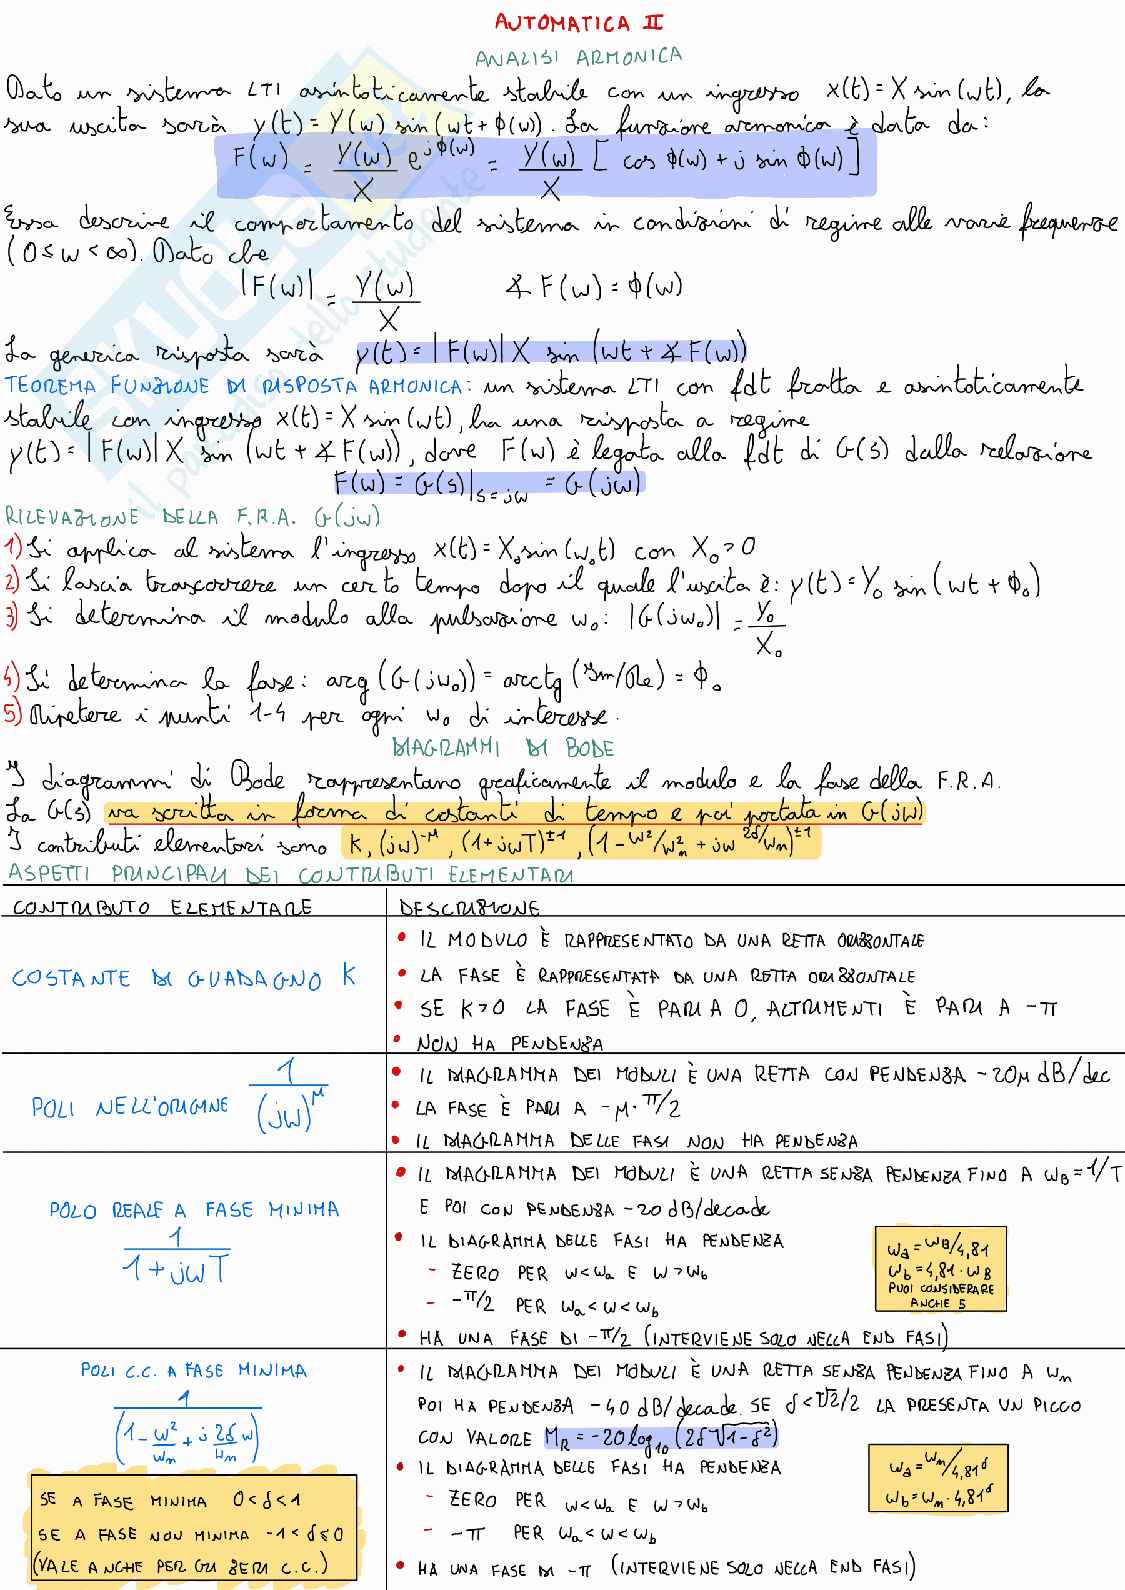 AUTOMATICA II
ANALISI ARMONICA
Dato un sistema LTI asintoticamente stabile con un ingresso x(t) = X sin(wt), la
sua uscita sarà y(t) = Y(w) sin(wt + ϕ(w)). La funzione armonica è data da:
F(w) = Y(w)/X e^jϕ(w) = Y(w)/X [cos ϕ(w) + j sin ϕ(w)]
Essa descrive il comportamento del sistema in condizioni di regime alle varie frequenze
(0 ≤ w < ∞). Dato che
|F(w)| = Y(w)/X ∡ F(w) = ϕ(w)
La generica risposta sarà y(t) = |F(w)| X sin (wt + ∡ F(w))
TEOREMA FUNZIONE DI RISPOSTA ARMONICA: un sistema LTI con fdt fratta e asintoticamente
stabile con ingresso x(t) = X sin(wt), ha una risposta a regime
y(t) = |F(w)| X sin (wt + ∡ F(w)), dove F(w) è legata alla fdt di G(s) dalla relazione
F(w) = G(s)|s=jw = G(jw)
RILEVAZIONE DELLA F.R.A. G(jw)
1) Si applica al sistema l'ingresso x(t) = X₀ sin(w₀t) con X₀ > 0
2) Si lascia trascorrere un certo tempo dopo il quale l'uscita è: y(t) = Y₀ sin(wt + ϕ₀)
3) Si determina il modulo alla pulsazione w₀: |G(jw₀)| = Y₀/X₀
4) Si determina la fase: arg (G(jw₀)) = arctg (Im/Re) = ϕ₀
5) Ripetere i punti 1-4 per ogni w₀ di interesse.
DIAGRAMMI DI BODE
I diagrammi di Bode rappresentano graficamente il modulo e la fase della F.R.A.
La G(s) va scritta in forma di costanti di tempo e poi portata in G(jw)
I contributi elementari sono K, (jw)^-μ, (1+jwT)^±1, (1 - w²/w²n + jw 2δ/wn)^±1
ASPETTI PRINCIPALI DEI CONTRIBUTI ELEMENTARI
CONTRIBUTO ELEMENTARE DESCRIZIONE
COSTANTE DI GUADAGNO K
• IL MODULO È RAPPRESENTATO DA UNA RETTA ORIZZONTALE
• LA FASE È RAPPRESENTATA DA UNA RETTA ORIZZONTALE
• SE K>0 LA FASE È PARI A 0, ALTRIMENTI È PARI A -π
• NON HA PENDENZA
POLI NELL'ORIGINE 1/(jw)^μ
• IL DIAGRAMMA DEI MODULI È UNA RETTA CON PENDENZA -20μ dB/dec
• LA FASE È PARI A -μ·π/2
• IL DIAGRAMMA DELLE FASI NON HA PENDENZA
POLO REALE A FASE MINIMA
1/(1+jwT)
• IL DIAGRAMMA DEI MODULI È UNA RETTA SENZA PENDENZA FINO A wB = 1/T
E POI CON PENDENZA -20 dB/decade
• IL DIAGRAMMA DELLE FASI HA PENDENZA
- ZERO PER w<wa E w>wb
- -π/2 PER wa<w<wb
• HA UNA FASE DI -π/2 (INTERVIENE SOLO NELLA END FASI)
wa = wB/4,81
wb = 4,81·wB
PUOI CONSIDERARE
ANCHE 5
POLI C.C. A FASE MINIMA
1/(1 - w²/wn + j 2δ/wn w)
SE A FASE MINIMA 0<δ<1
SE A FASE NON MINIMA -1<δ≤0
(VALE ANCHE PER GLI ZERI C.C.)
• IL DIAGRAMMA DEI MODULI È UNA RETTA SENZA PENDENZA FINO A wn
POI HA PENDENZA -40 dB/decade. SE δ<√2/2 LA PRESENTA UN PICCO
CON VALORE MR = -20log10 (2δ√1-δ²)
• IL DIAGRAMMA DELLE FASI HA PENDENZA
- ZERO PER w<wa E w>wb
- -π PER wa<w<wb
• HA UNA FASE DI -π (INTERVIENE SOLO NELLA END FASI)
wa = wn/4,81^δ
wb = wn·4,81^δ